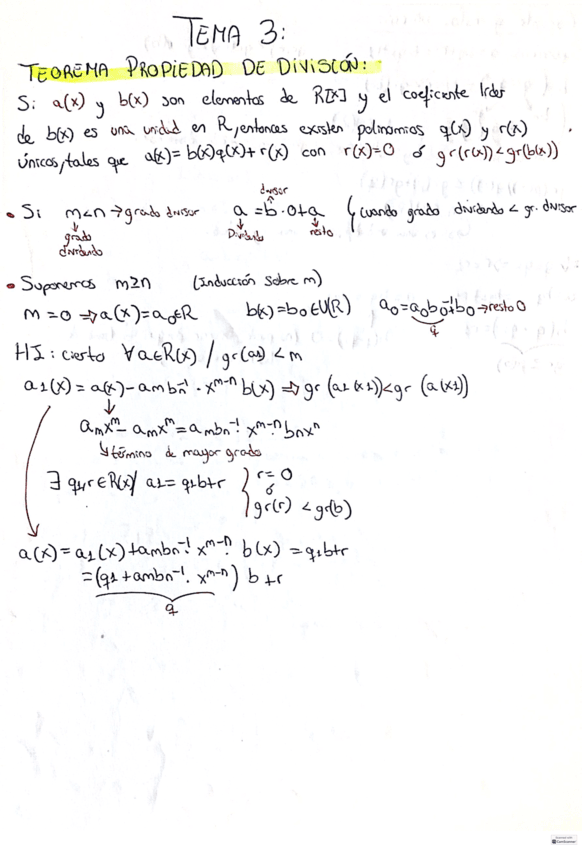 TEMA 3:
TEOREMA PROPIEDAD DE DIVISIÓN:
Si a(x) y b(x) son elementos de R[x] y el coeficiente líder
de b(x) es una unidad en R, entonces existen polinomios q(x) y r(x)
únicos, tales que a(x)=b(x)q(x)+r(x) con r(x)=0 ó gr(r(x))<gr(b(x))
• Si m<n → grado divisor a = b·0+a (cuando grado dividendo < gr. divisor
divisor
grado dividendo
Dividendo resto
• Suponemos m≥n (Inducción sobre m)
m=0 ⇒ a(x)=a₀∈R b(x)=b₀∈U(R) a₀=a₀b₀⁻¹b₀ → resto 0
q
HI: cierto ∀a∈R(x) / gr(a1) < m
a1(x) = a(x) - ambn⁻¹ · xᵐ⁻ⁿ b(x) ⇒ gr(a1(x))<gr(a(x))
amxᵐ - amxᵐ = ambn⁻¹ xᵐ⁻ⁿ bnxⁿ
↳ término de mayor grado
∃ q1,r∈R(x)/ a1 = q1b+r } r=0
ó
gr(r) < gr(b)
a(x) = a1(x)+ambn⁻¹ xᵐ⁻ⁿ b(x) = q1b+r
=(q1+ambn⁻¹ · xᵐ⁻ⁿ) b+r
q
CamScanner